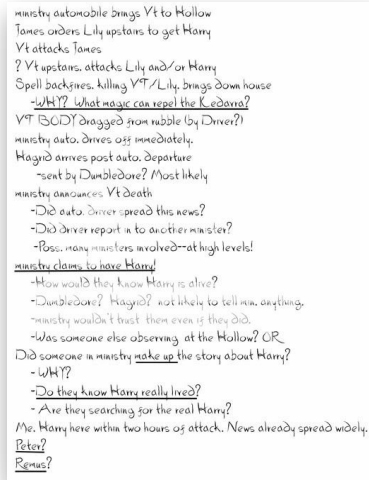 ministry automobile brings Vt to Hollow
James orders Lily upstairs to get Harry
Vt attacks James
? Vt upstairs, attacks Lily and/or Harry
Spell backfires, killing VT/Lily, brings down house
-WHY? What magic can repel the Kedavra?
VT BODY dragged from rubble (by Driver?)
ministry auto. drives off immediately.
Hagrid arrives post auto. departure
-sent by Dumbledore? Most likely
ministry announces Vt death
-Did auto. driver spread this news?
-Did driver report in to another minister?
-Poss. many ministers involved--at high levels!
ministry claims to have Harry!
-How would they know Harry is alive?
-Dumbledore? Hagrid? not likely to tell min. anything.
-ministry wouldn't trust them even if they did.
-Was someone else observing at the Hollow? OR
Did someone in ministry make up the story about Harry?
- WHY?
-Do they know Harry really lived?
- Are they searching for the real Harry?
Me. Harry here within two hours of attack. News already spread widely.
Peter?
Remus?